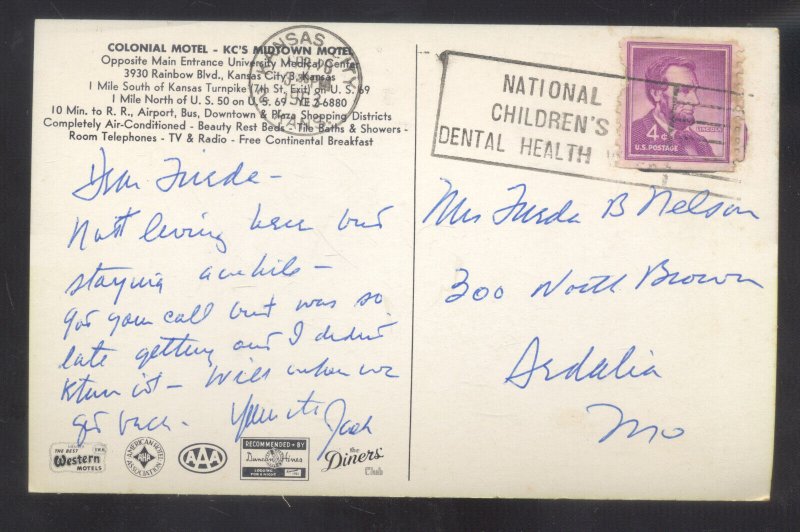 COLONIAL MOTEL - KC'S MIDTOWN MOTEL
Opposite Main Entrance University Medical Center
3930 Rainbow Blvd., Kansas City 3, Kansas
1 Mile South of Kansas Turnpike (7th St. Exit) on U. S. 69
1 Mile North of U. S. 50 on U. S. 69 YE 2-6880
10 Min. to R. R., Airport, Bus, Downtown & Plaza Shopping Districts
Completely Air-Conditioned - Beauty Rest Beds - Tile Baths & Showers -
Room Telephones - TV & Radio - Free Continental Breakfast
KANSAS CITY
KANS.
NATIONAL
CHILDREN'S
DENTAL HEALTH
4¢
LINCOLN
U.S. POSTAGE
Dear Frieda -
Not living here but
staying awhile -
got your call but was so
late getting and I didn't
- Will when we
get back. Jack
Mrs Frieda B Nelson
300 North Brown
Sedalia
Mo
THE BEST
Western
MOTELS
AMERICAN HOTEL
AHA
ASSOCIATION
AAA
RECOMMENDED BY
Duncan Hines
LODGING
FOR A NIGHT
the
Diners'
Club